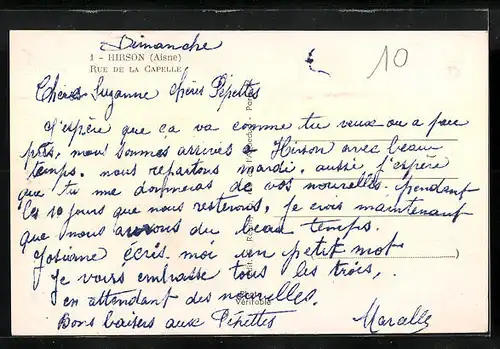 Dimanche
10
1 - HIRSON (Aisne)
RUE DE LA CAPELLE
Chère Suzanne chères Pépettes
J'espère que ça va comme tu veux ou a peu
près, nous sommes arrivés a Hirson avec beau
temps. nous repartons mardi. aussi j'espère
que tu me donneras de vos nouvelles. pendant
les 10 jours que nous resterons, je crois maintenant
que nous aurons du beau temps.
Josiane écris moi un petit mot
Je vous embrasse tous les trois,
en attendant des nouvelles.
Bons baisers aux Pépettes
Véritable